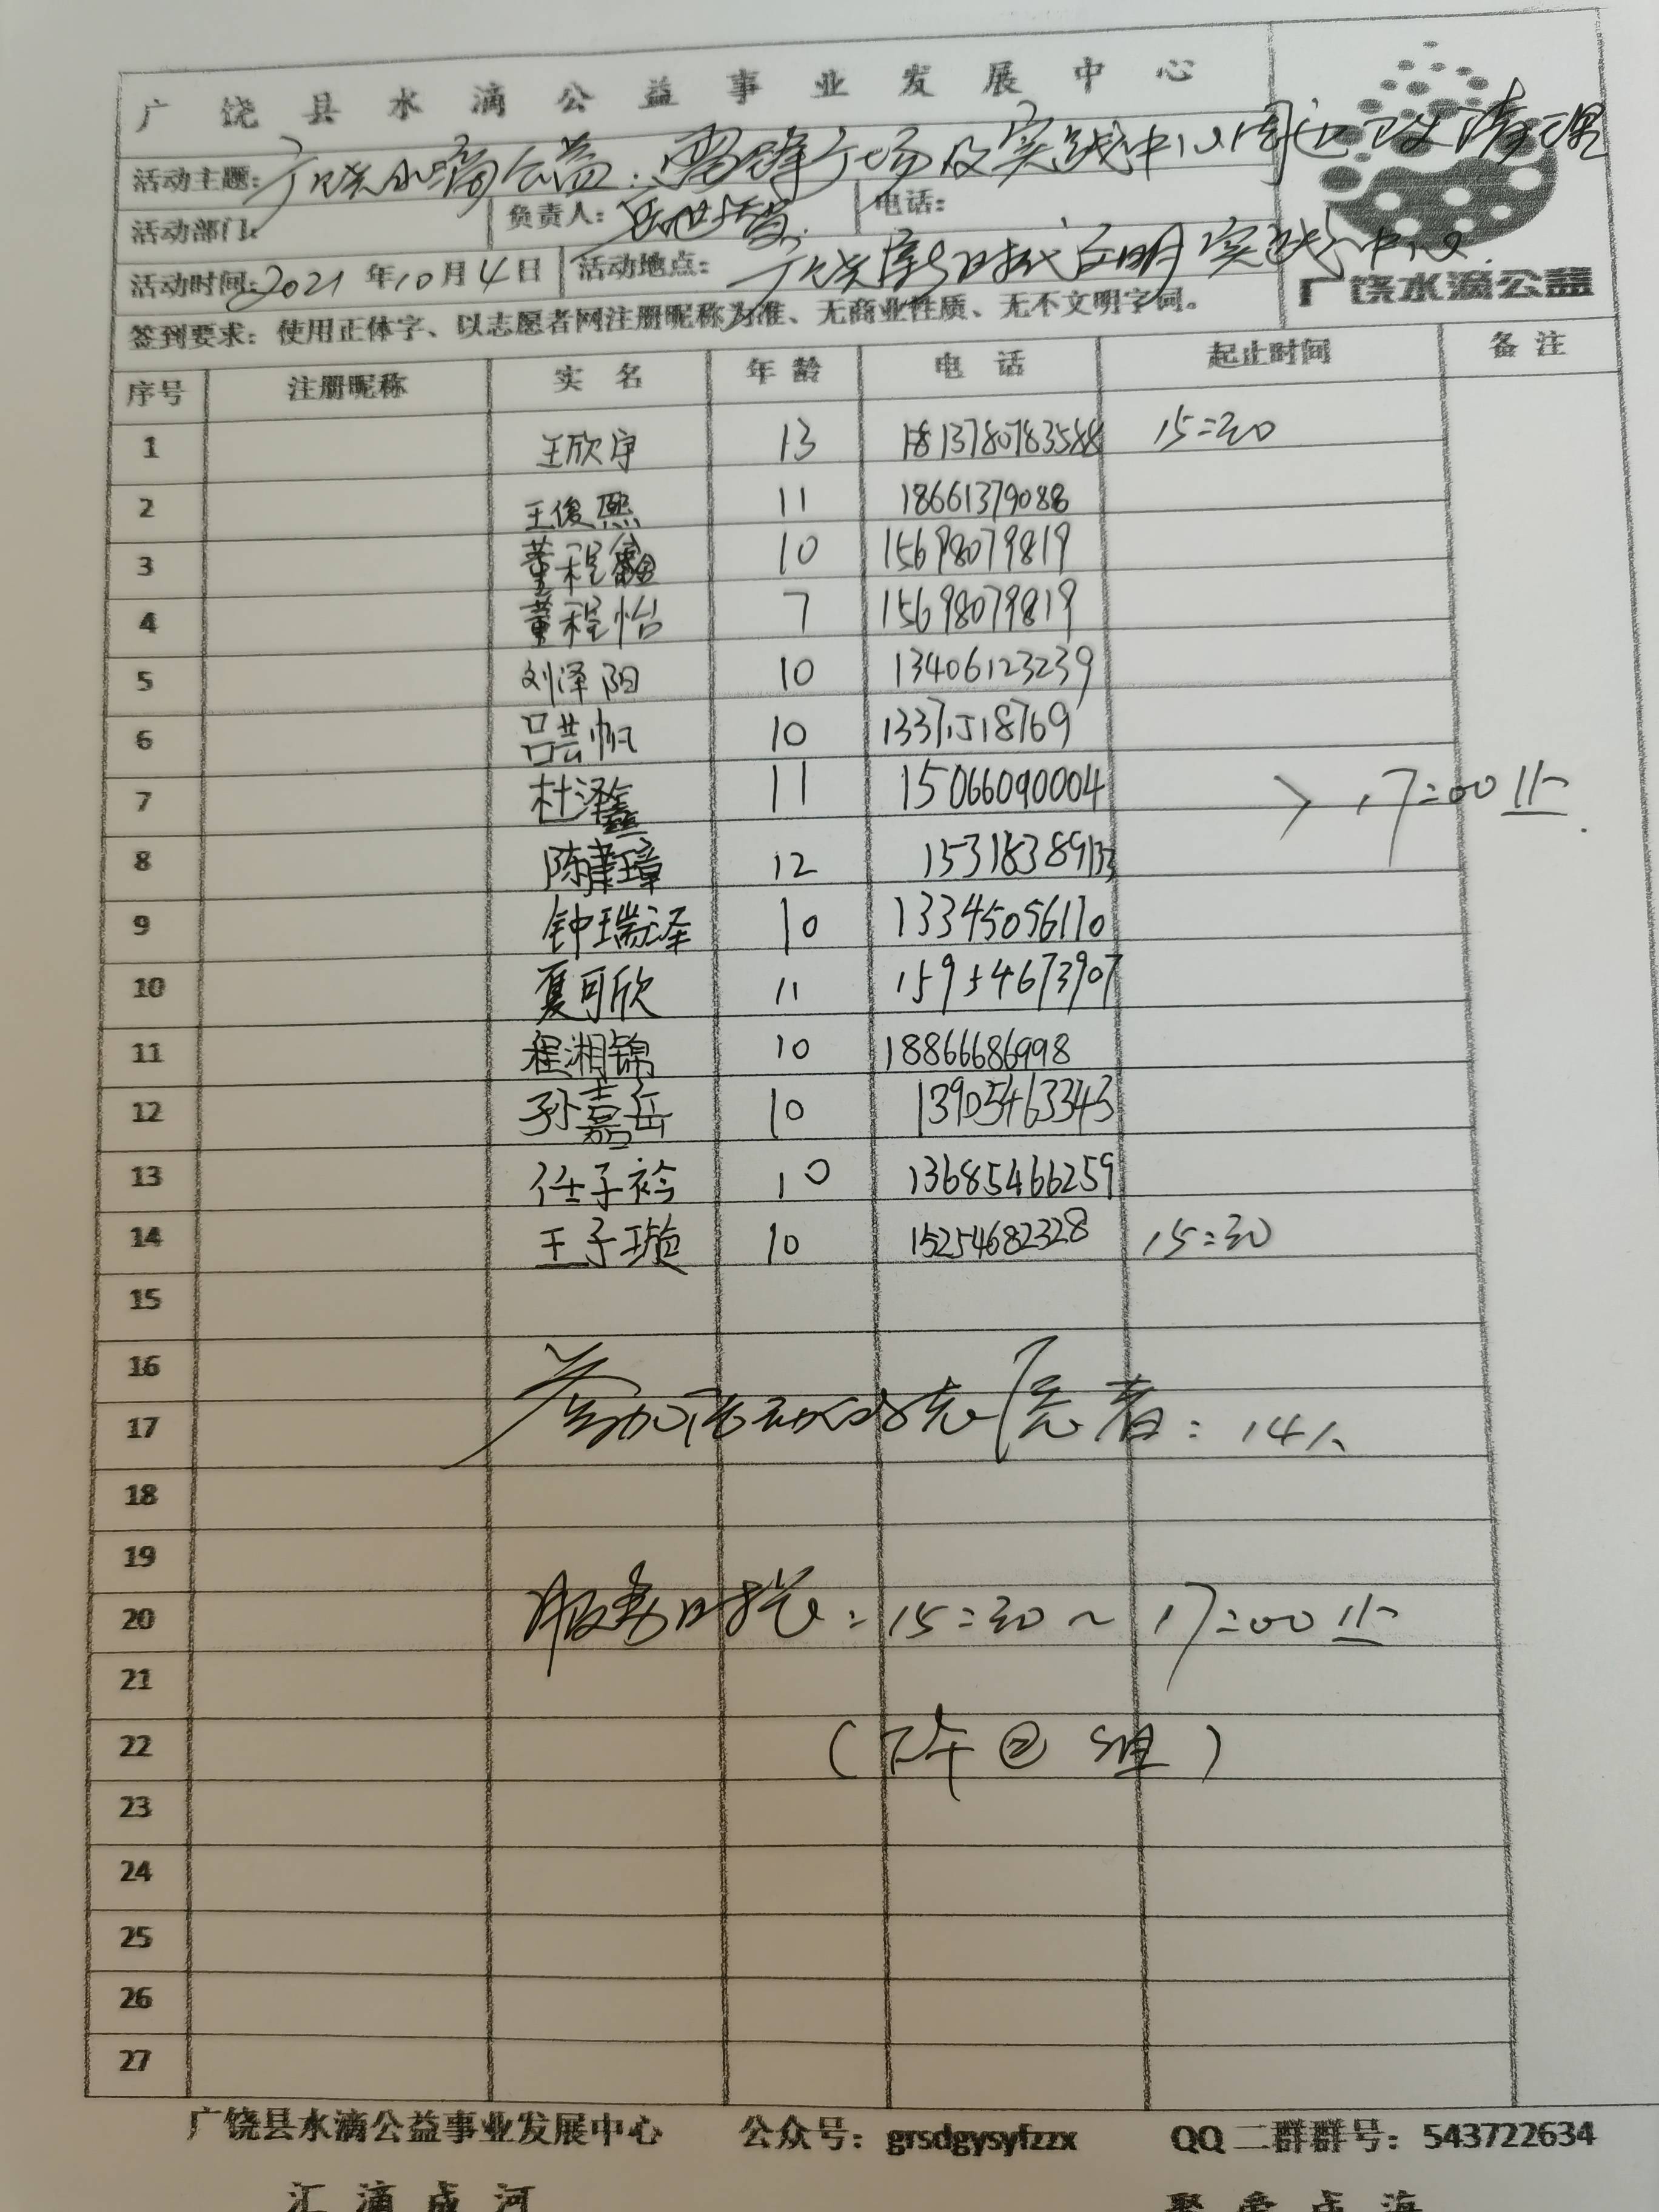 广饶县水滴公益事业发展中心
活动主题：广饶水滴公益：雷锋广场及实践中心周边卫生清理
活动部门： 负责人： 电话：
活动时间：2021年10月4日 活动地点：广饶新时代文明实践中心
广饶水滴公益
签到要求：使用正体字、以志愿者网注册昵称为准、无商业性质、无不文明字词。
序号 注册昵称 实名 年龄 电话 起止时间 备注
1 王欣宇 13 15=30
2 王俊熙 11 18661379088
3 董程鑫 10 15698079819
4 董程怡 7 15698079819
5 刘泽阳 10 13406123239
6 吕芸帆 10
7 杜泽鑫 11 15066090004 17=00止
8 12
9 钟瑞泽 10 13345056110
10 夏可欣 11 15954673907
11 程湘锦 10 18866686998
12 孙嘉岳 10 13905463343
13 任子衿 10 13685466259
14 王子璇 10 15254682328 15=30
15
16
17 参加活动的志愿者：14人
18
19
20 服务时长：15=30～17=00止
21
22 （下午②组）
23
24
25
26
27
广饶县水滴公益事业发展中心 公众号：grsdgysyfzzx QQ二群群号：543722634
汇滴成河 聚爱成海